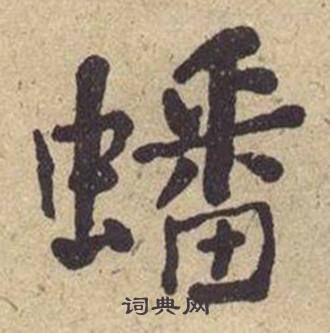 蟠
词典网